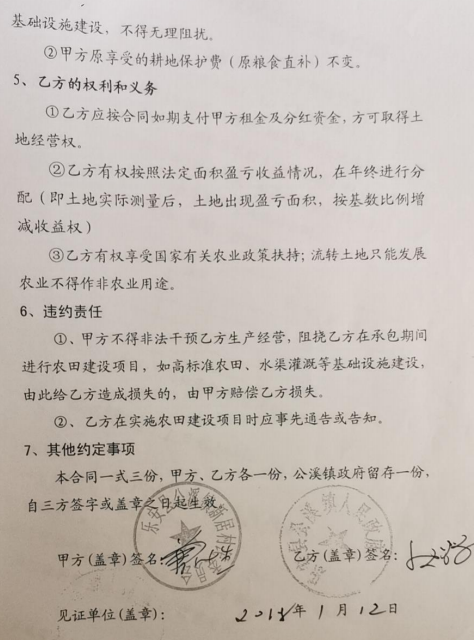 基础设施建设，不得无理阻扰。
②甲方原享受的耕地保护费（原粮食直补）不变。
5、乙方的权利和义务
①乙方应按合同如期支付甲方租金及分红资金，方可取得土
地经营权。
②乙方有权按照法定面积盈亏收益情况，在年终进行分
配（即土地实际测量后，土地出现盈亏面积，按基数比例增
减收益权）
③乙方有权享受国家有关农业政策扶持；流转土地只能发展
农业不得作非农业用途。
6、违约责任
①、甲方不得非法干预乙方生产经营，阻挠乙方在承包期间
进行农田建设项目，如高标准农田、水渠灌溉等基础设施建设，
由此给乙方造成损失的，由甲方赔偿乙方损失。
②、乙方在实施农田建设项目时应事先通告或告知。
7、其他约定事项
本合同一式三份，甲方、乙方各一份，公溪镇政府留存一份，
自三方签字或盖章之日起生效。
甲方(盖章)签名：
乙方(盖章)签名：
见证单位(盖章)：
2018年1月12日